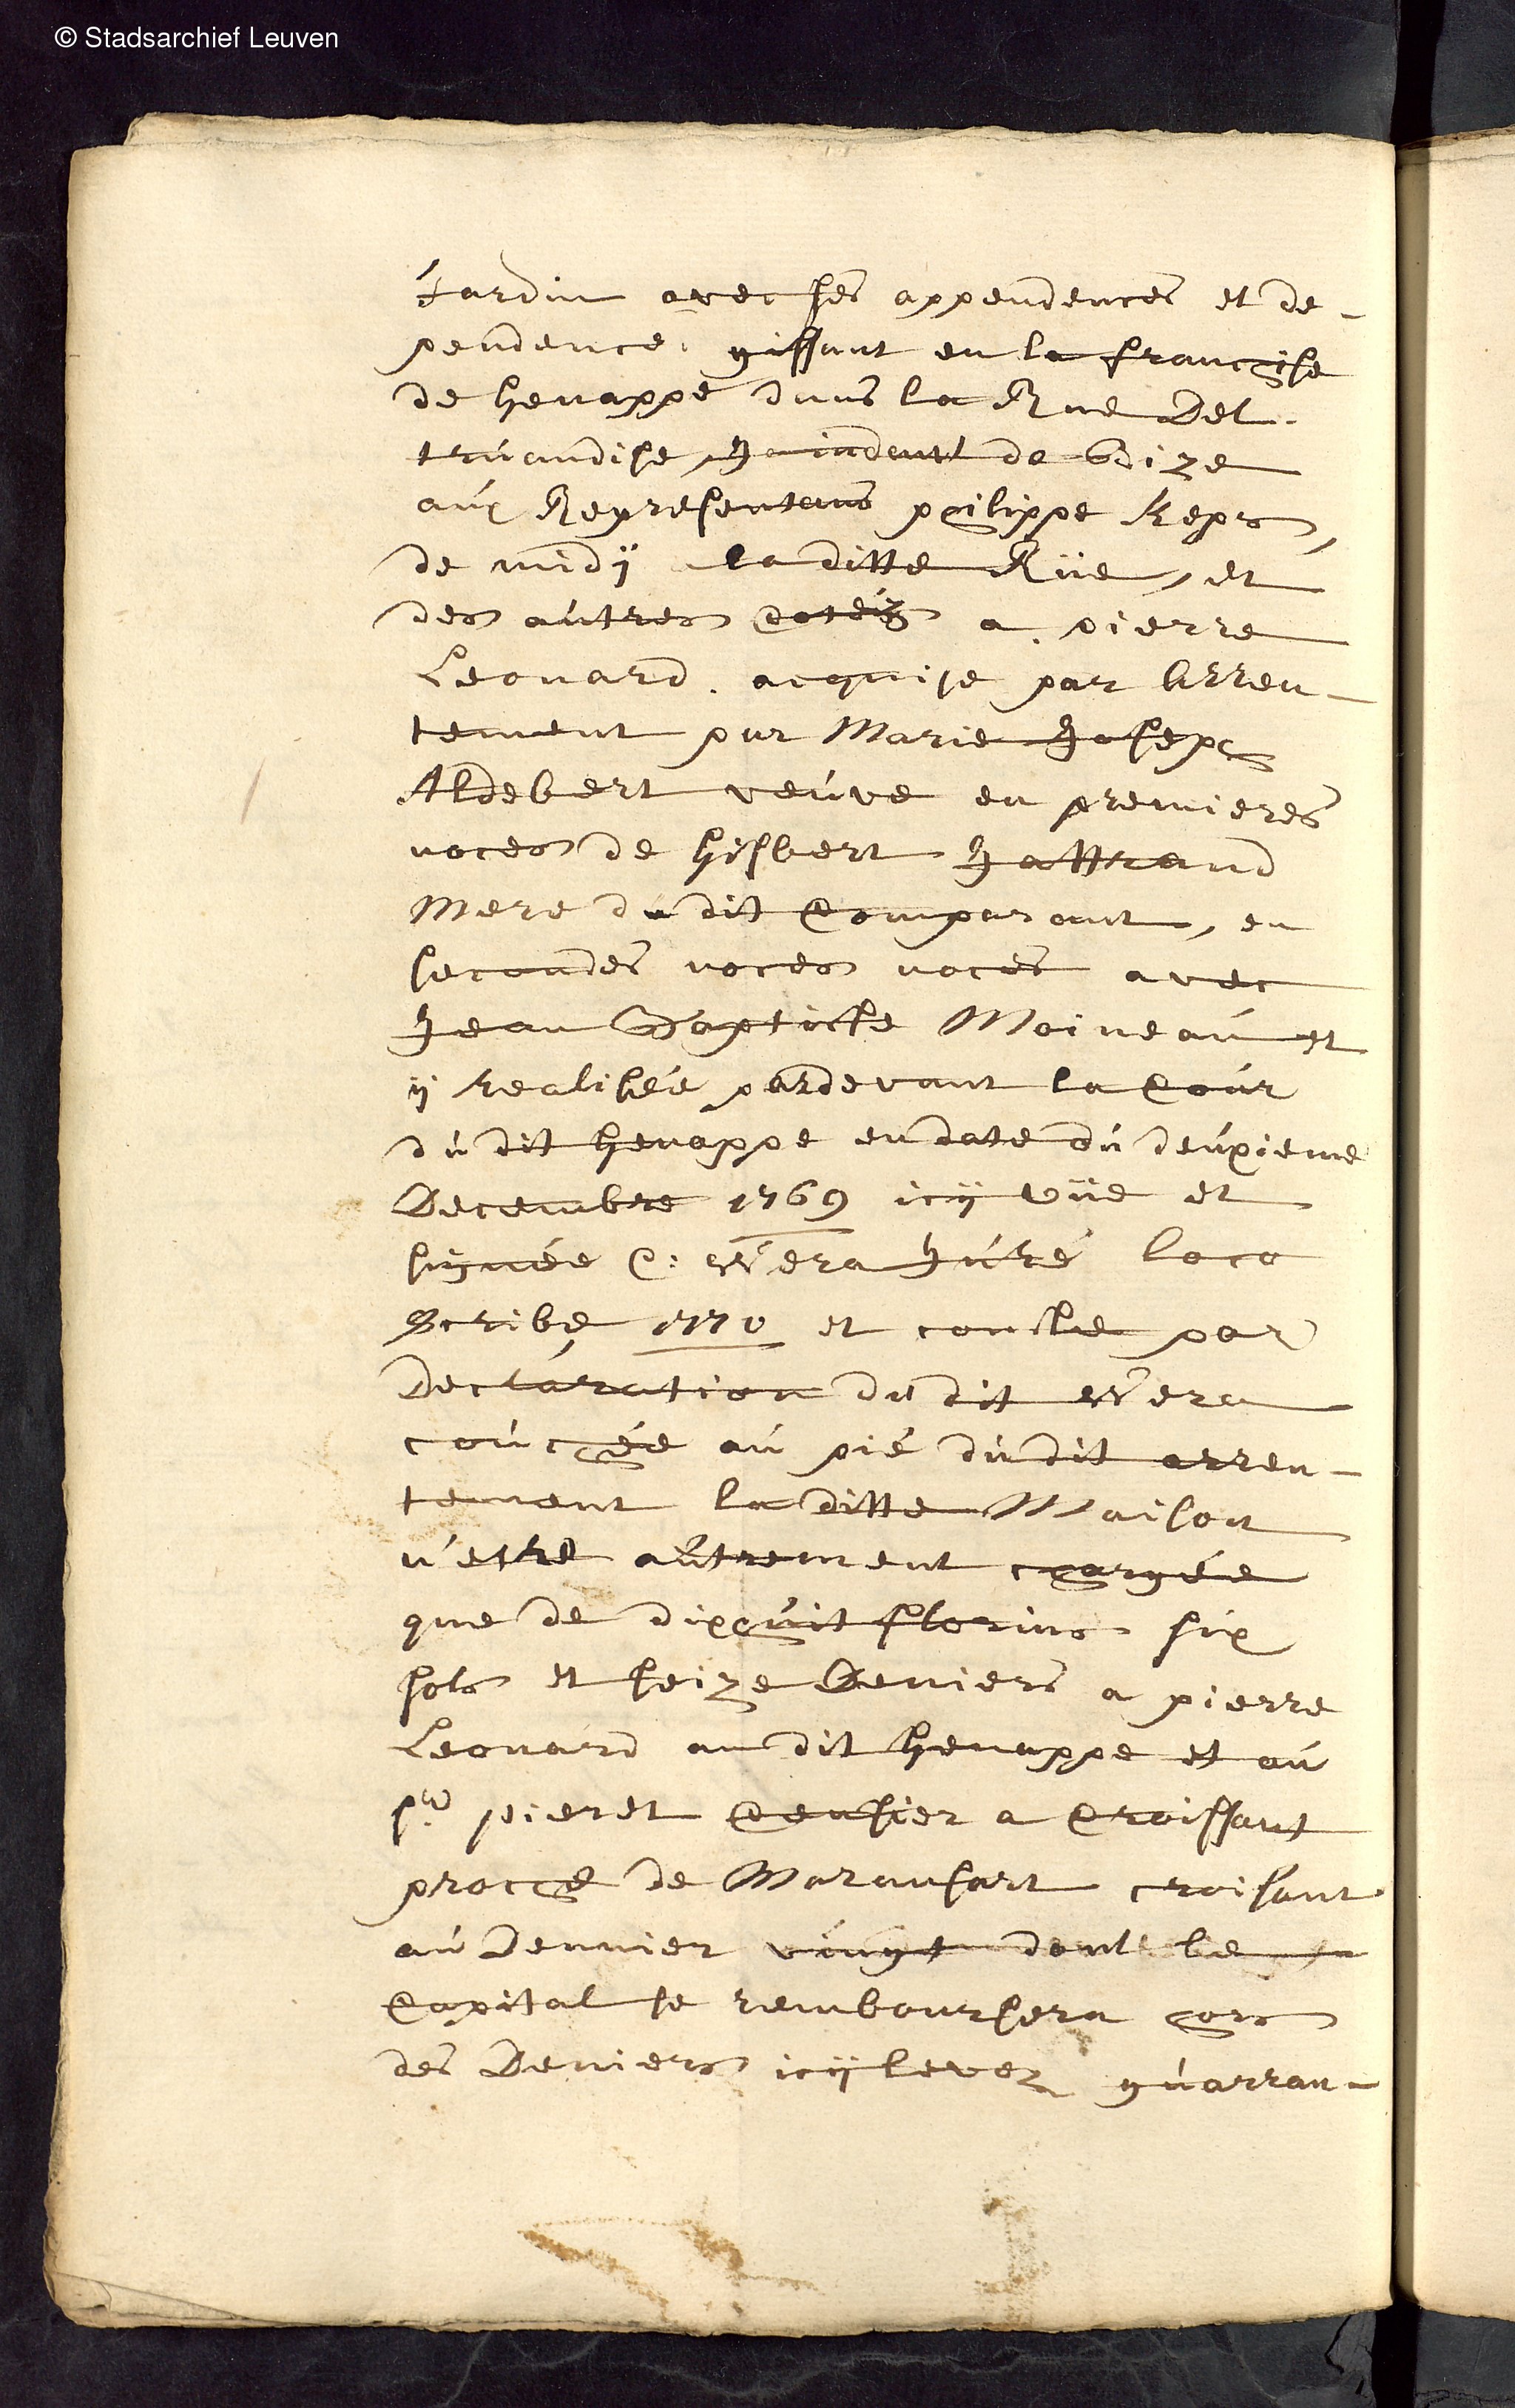 © Stadsarchief Leuven
Jardin avec ses appendences et de-
pendence gissant en la franchise
de henappe dans la Rue Del
truandise, Joindant de bize
aux Representans philippe Repr,
de midÿ la ditte Rüe, et
des autres Cotéz a pierre
Leonard. acquise par Arren-
tement par Marie Joseph
Aldebert veuve en premieres
noces de hisbert Hattrand
Mere du dit Comparant, en
secondes noces noces avec
Jean Baptiste Moineau et
ÿ realisée pardevant la Cour
du dit henappe en date du deuxieme
Decembre 1769 icÿ vüe et
signée C: Wera Juré loco
Scribe 1770 et conste par
Declaration du dit Wera
couchée au pié dudit arren-
tement la ditte Maison
n'etre autrement chargée
que de dixhuit florins six
sols et seize Deniers a pierre
Leonard au dit henappe et au
Sr. pieret Censier a Croissant
proche de Maransart croisant
au Dennier vingt dont le
Capital se remboursera hors
des Deniers icÿ levez quarran-